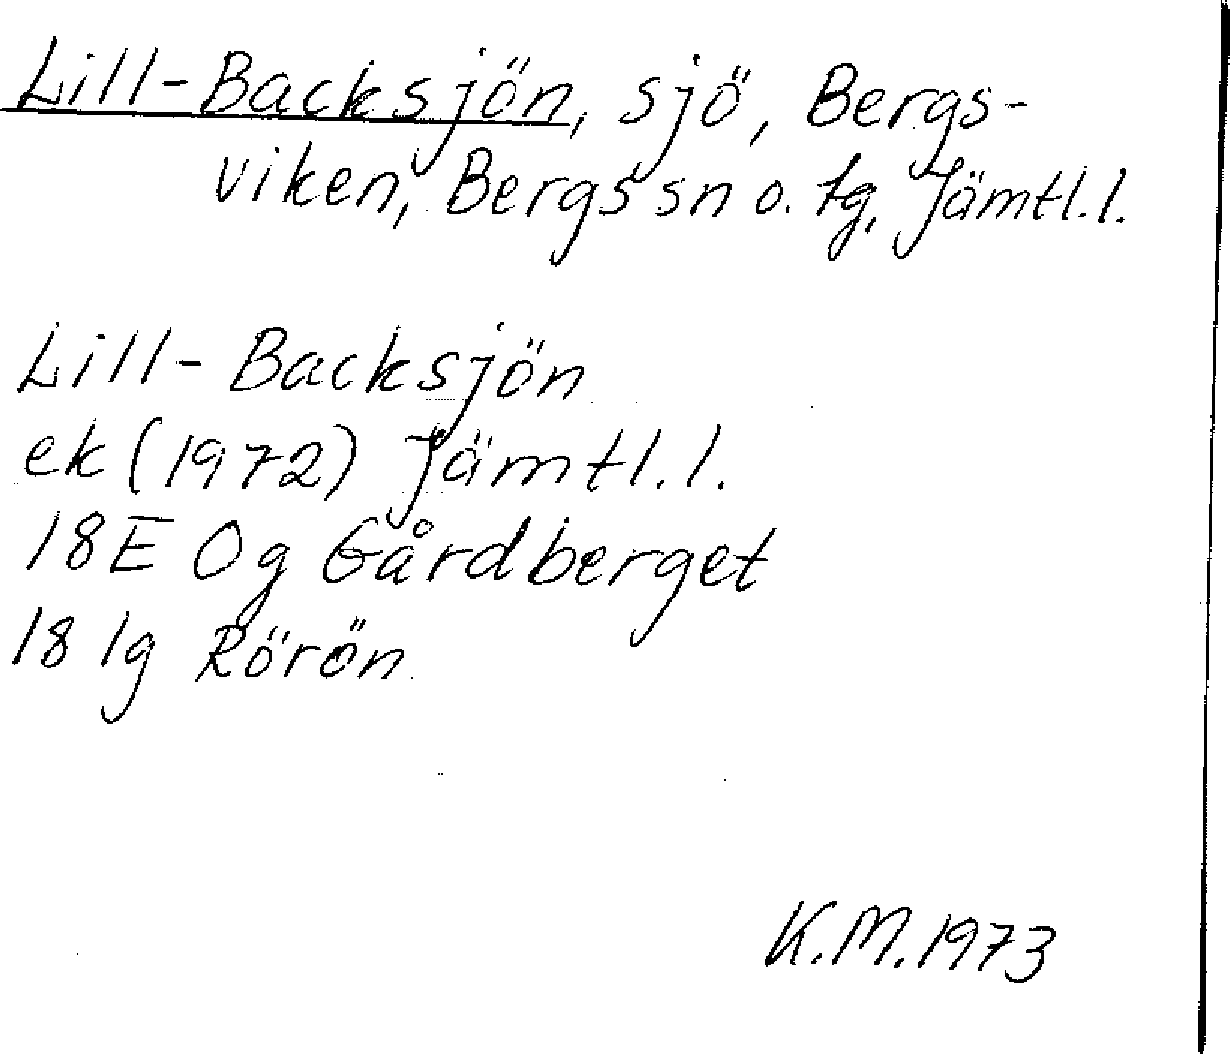 Lill-Backsjön, sjö, Bergs-
viken, Bergs sn o. tg, Jämtl.l.
Lill-Backsjön
ek (1972) Jämtl.l.
18E 0g Gårdberget
18 1g Rörön
K.M. 1973